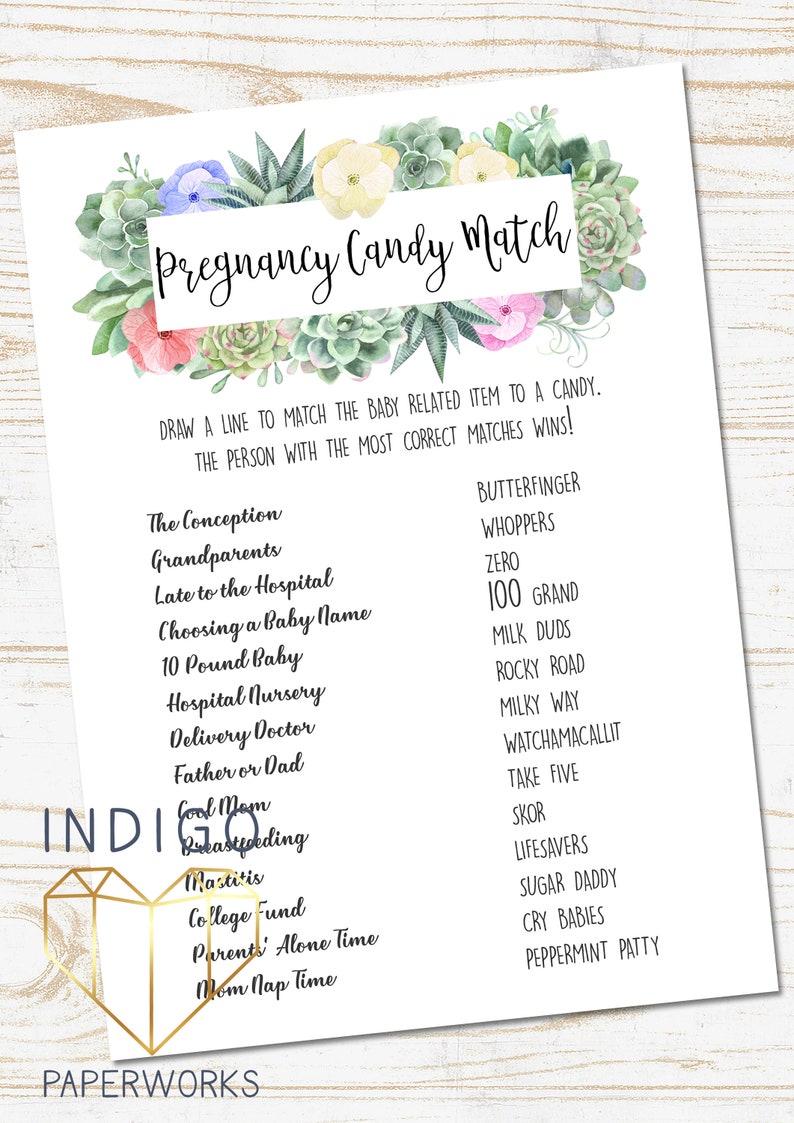 Pregnancy Candy Match
DRAW A LINE TO MATCH THE BABY RELATED ITEM TO A CANDY.
THE PERSON WITH THE MOST CORRECT MATCHES WINS!
The Conception
Grandparents
Late to the Hospital
Choosing a Baby Name
10 Pound Baby
Hospital Nursery
Delivery Doctor
Father or Dad
Cool Mom
Breastfeeding
Mastitis
College Fund
Parents' Alone Time
Mom Nap Time
BUTTERFINGER
WHOPPERS
ZERO
100 GRAND
MILK DUDS
ROCKY ROAD
MILKY WAY
WATCHAMACALLIT
TAKE FIVE
SKOR
LIFESAVERS
SUGAR DADDY
CRY BABIES
PEPPERMINT PATTY
INDIGO
PAPERWORKS